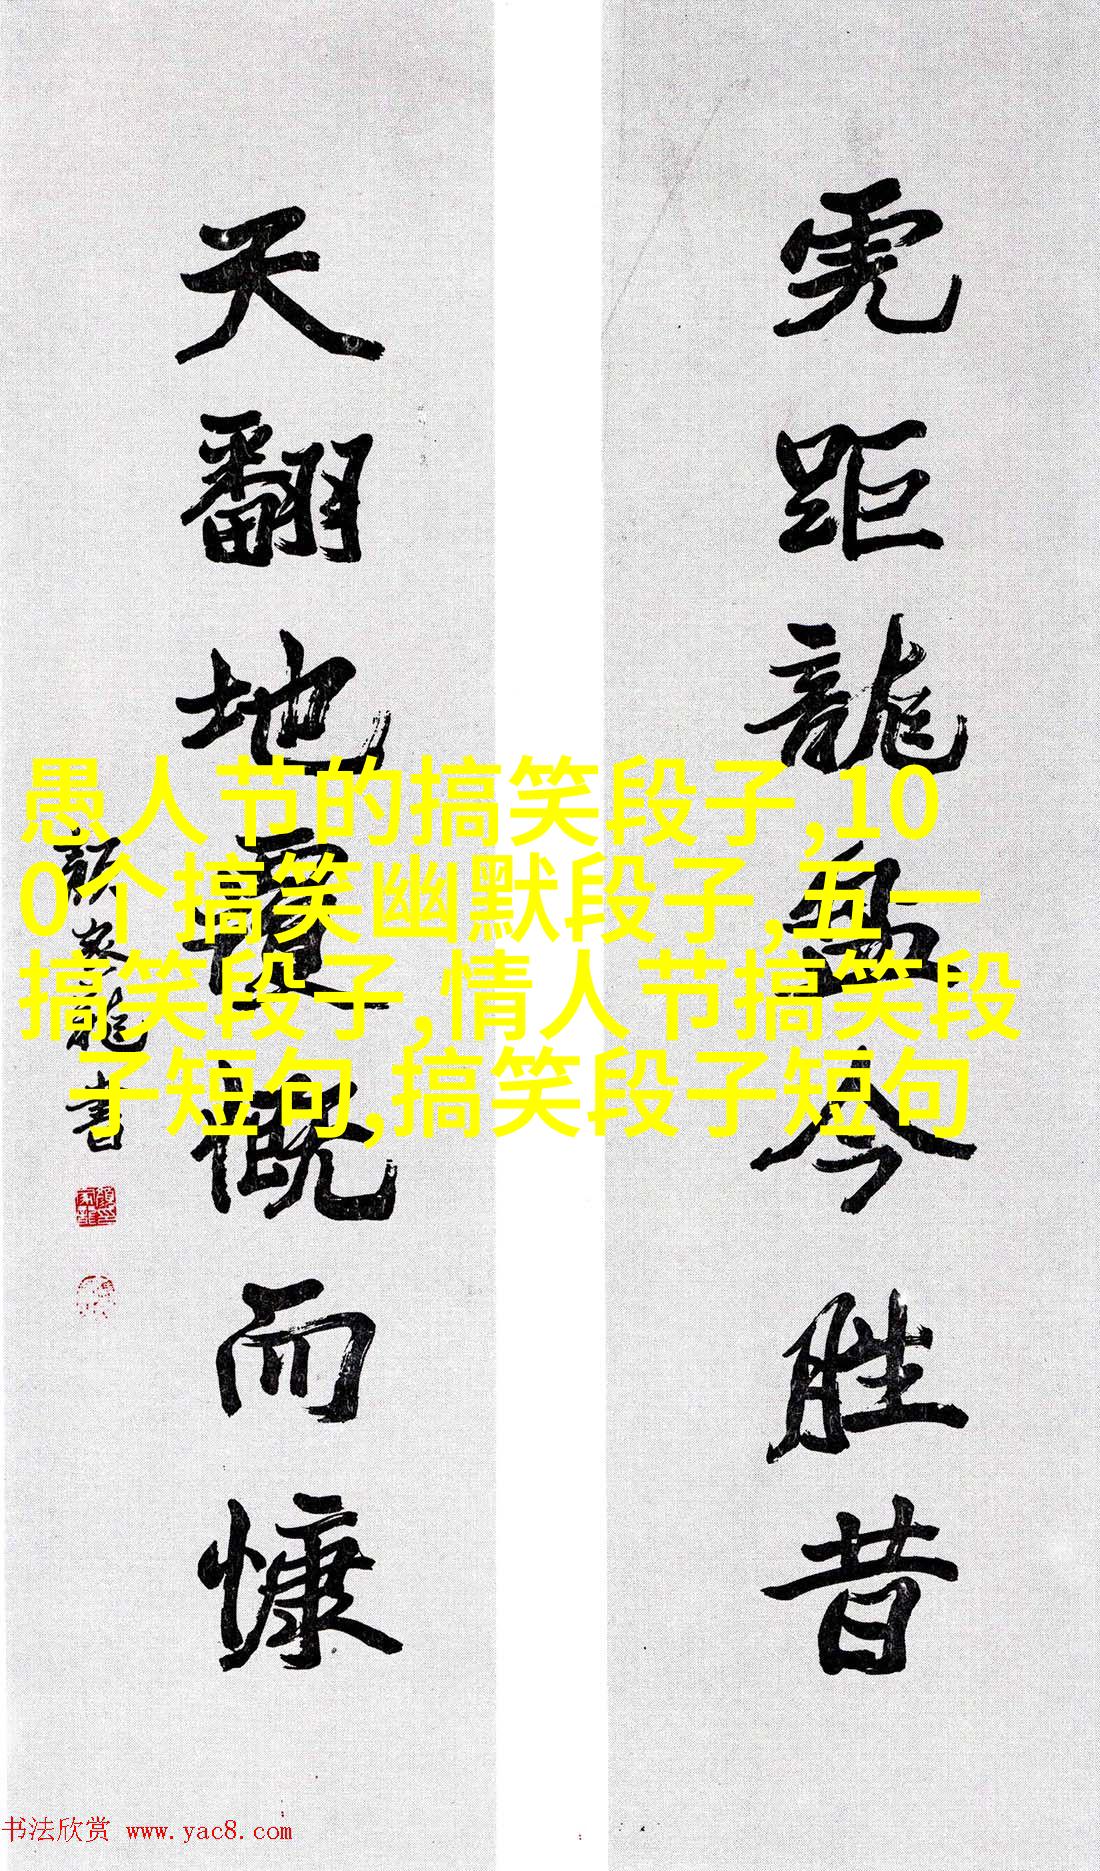 虎踞龍盤今胜昔
天翻地覆慨而慷
顾家龍书
愚人节的搞笑段子,10
0个搞笑幽默段子,五一
搞笑段子,情人节搞笑段
子短句,搞笑段子短句
书法欣赏 www.yac8.com